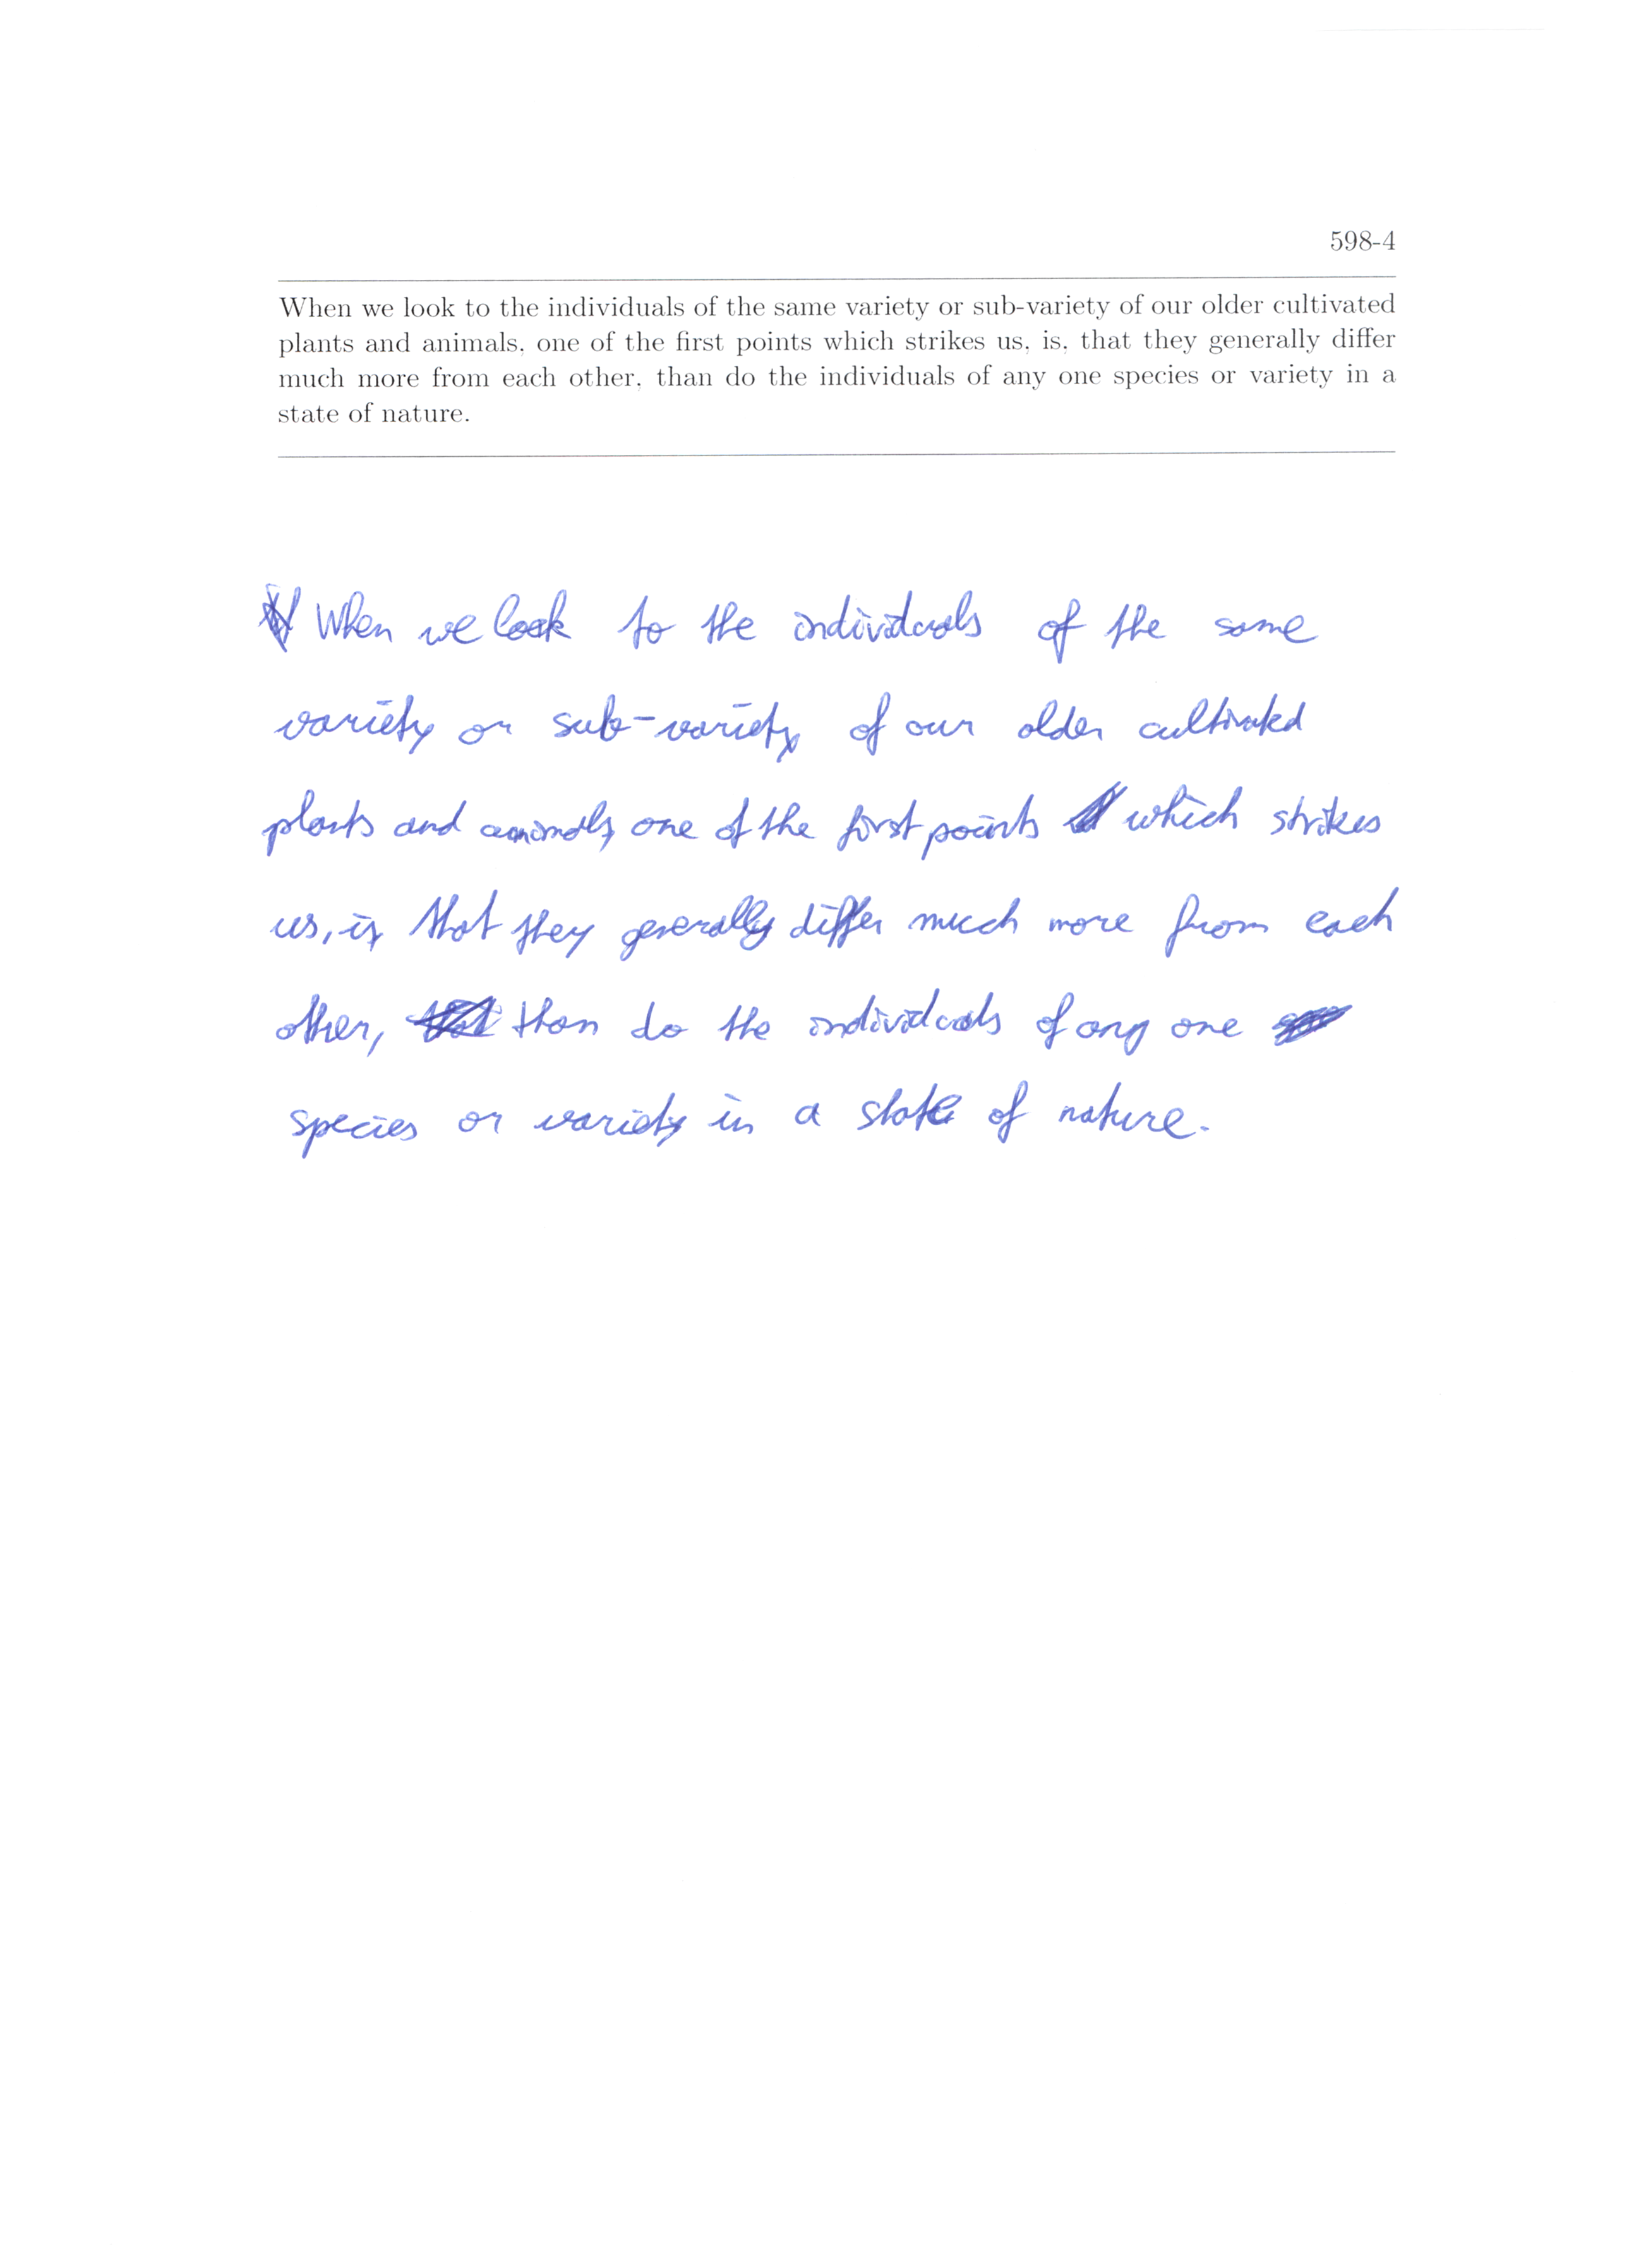 598-4
When we look to the individuals of the same variety or sub-variety of our older cultivated
plants and animals, one of the first points which strikes us, is, that they generally differ
much more from each other, than do the individuals of any one species or variety in a
state of nature.
When we look to the individuals of the same
variety or sub-variety of our older cultivated
plants and animals, one of the first points which strikes
us, is, that they generally differ much more from each
other, than do the individuals of any one
species or variety in a state of nature.